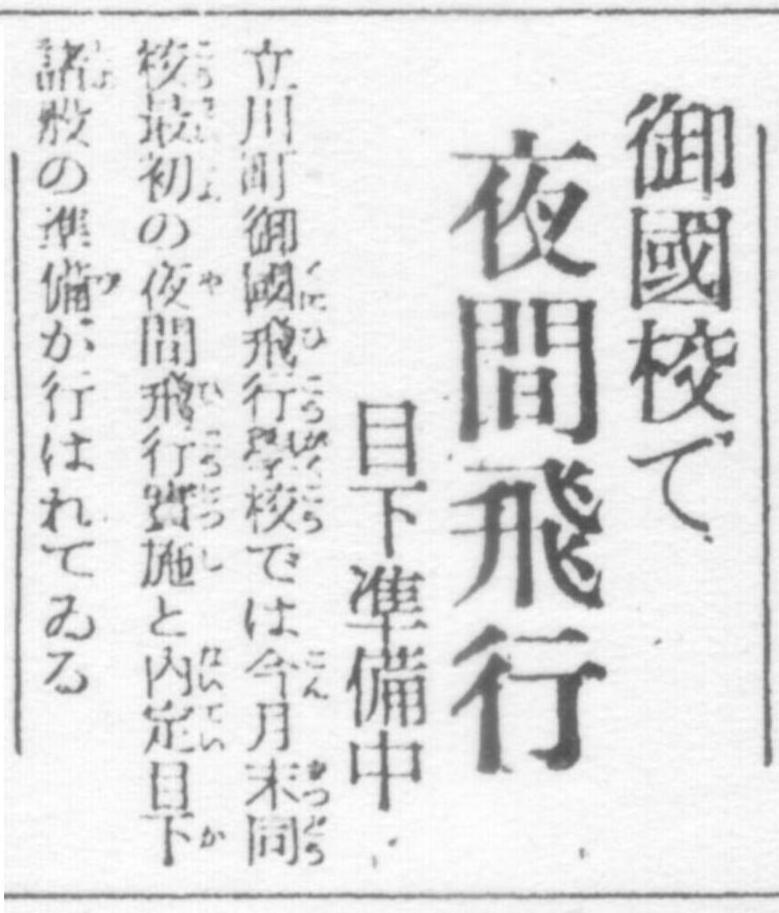 御國校で
夜間飛行
目下準備中
立川町御國飛行學校では今月末同
校最初の夜間飛行實施と內定目下
諸般の準備が行はれてゐる